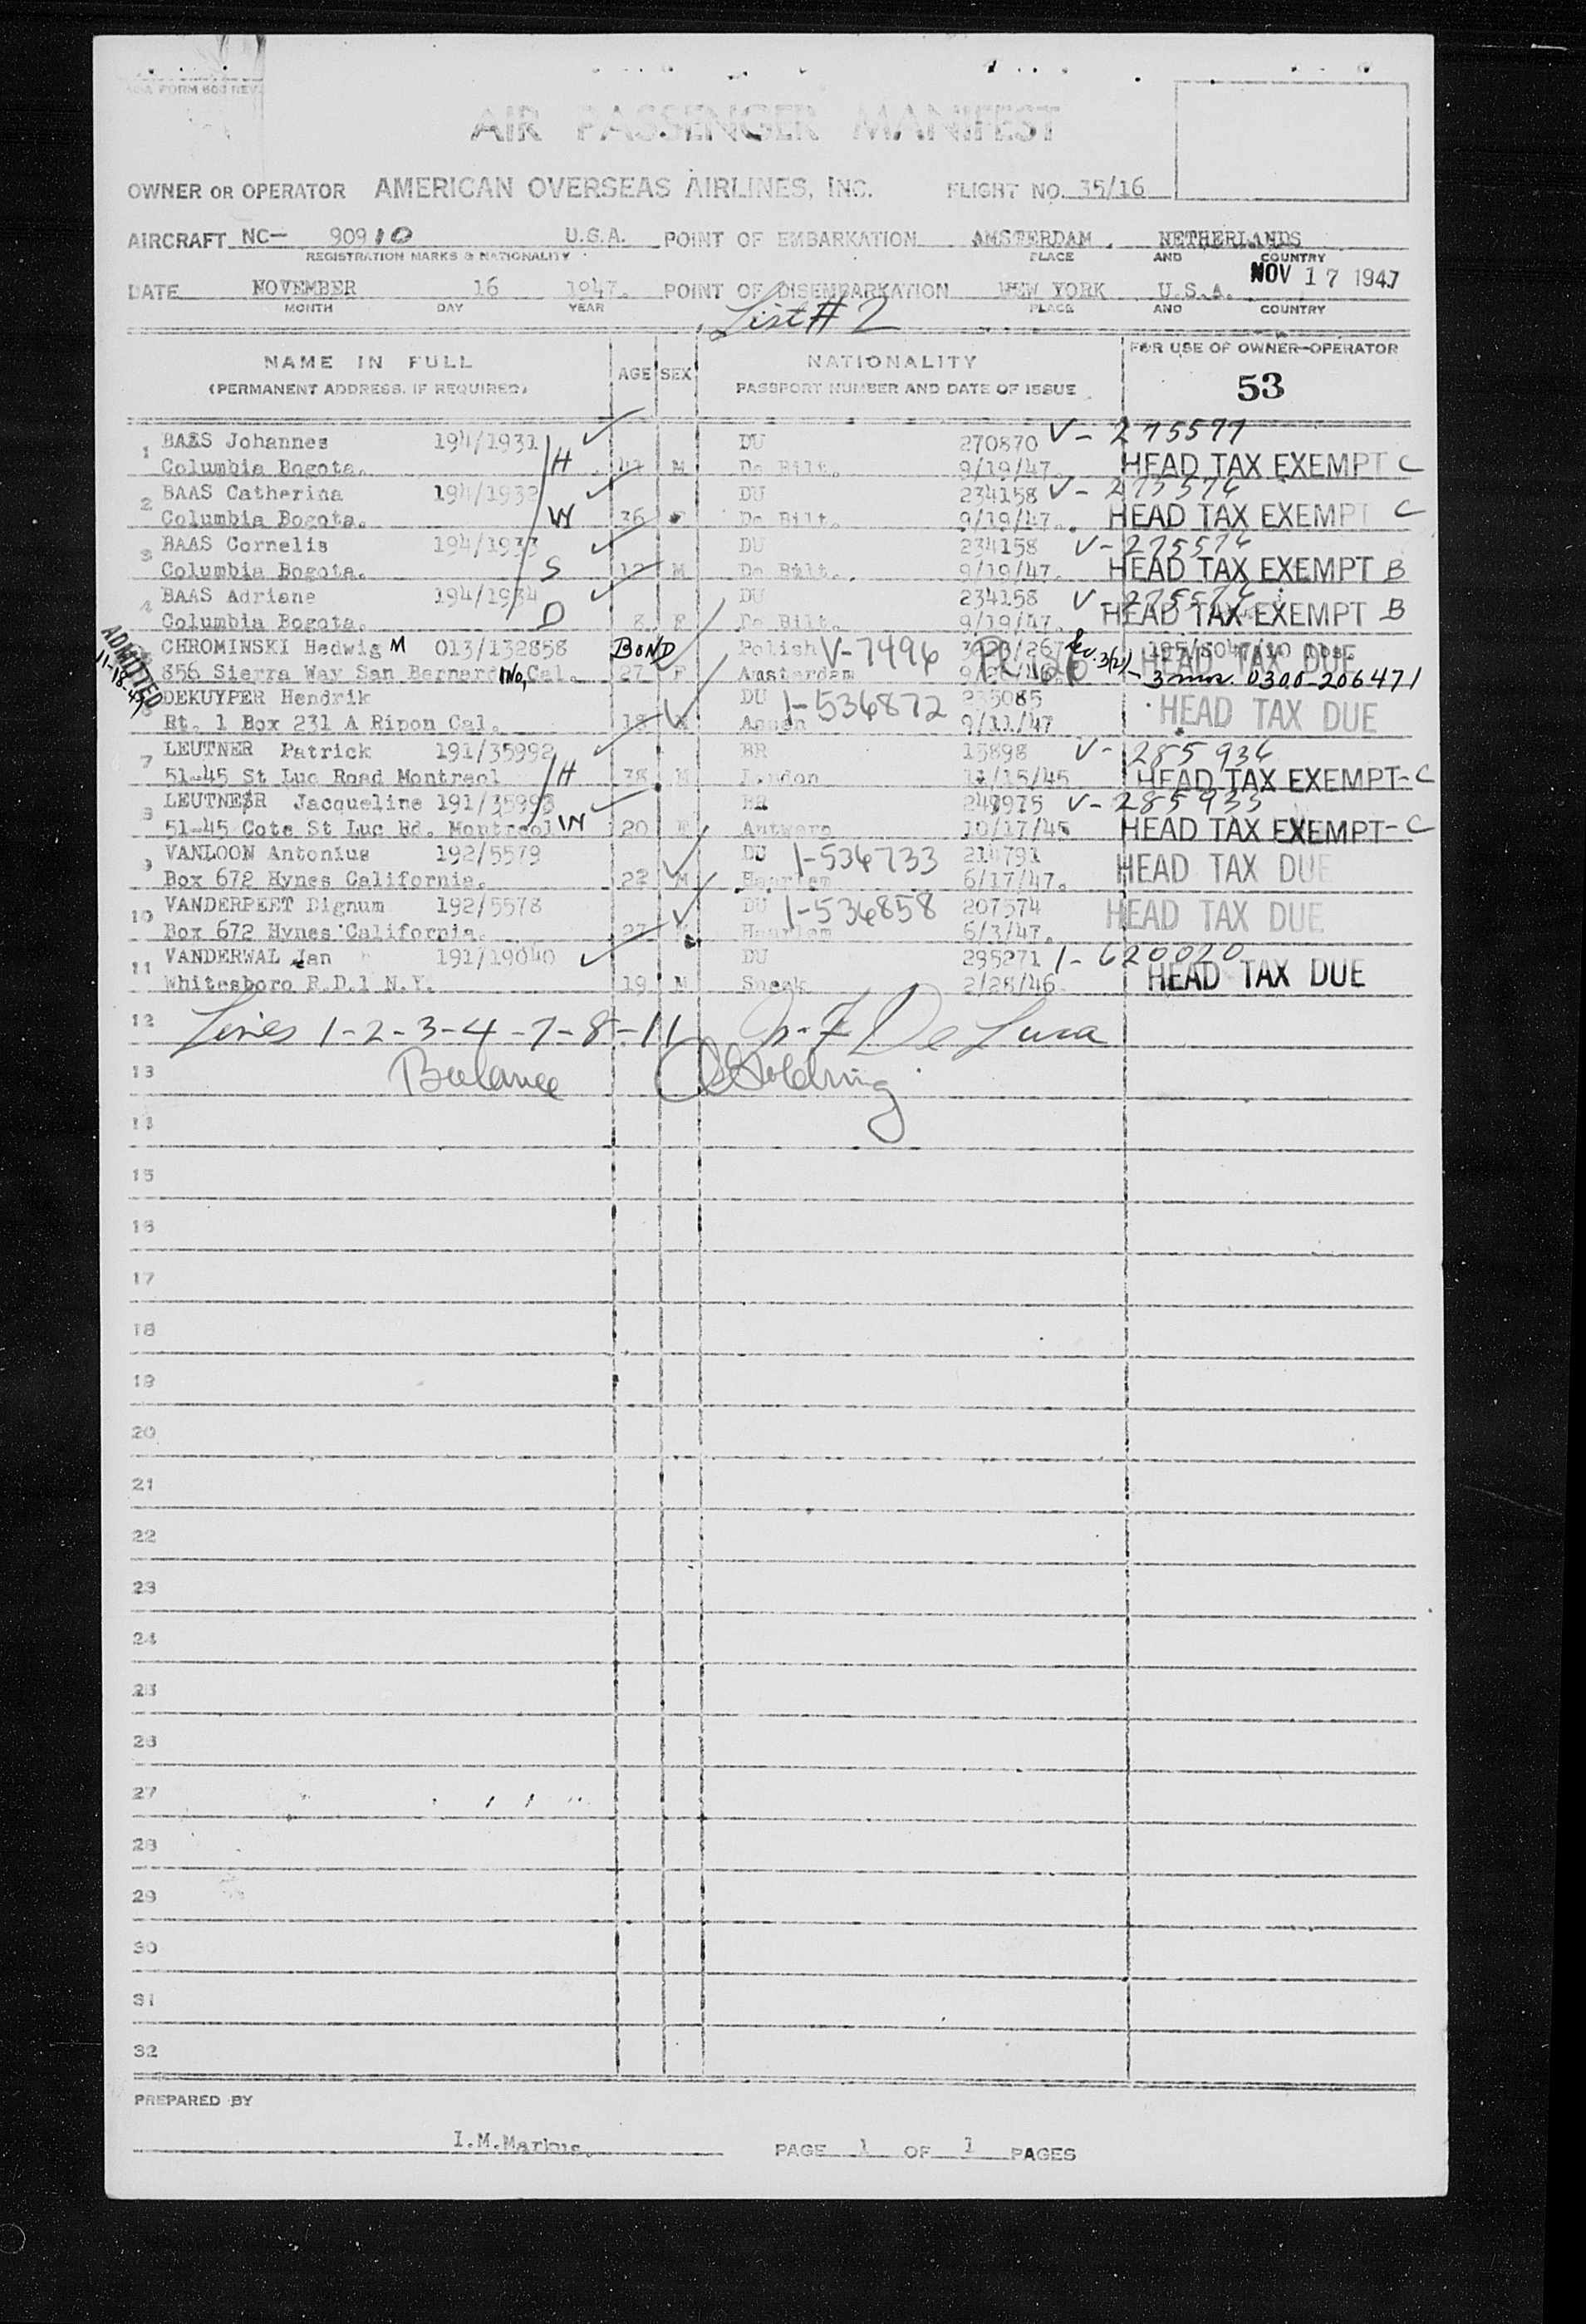 FORM 603 REV.
AIR PASSENGER MANIFEST
OWNER OR OPERATOR AMERICAN OVERSEAS AIRLINES, INC. FLIGHT NO. 35/16
AIRCRAFT NC- 90910 U.S.A. POINT OF EMBARKATION AMSTERDAM, NETHERLANDS
REGISTRATION MARKS & NATIONALITY PLACE AND COUNTRY
NOV 17 1947
DATE NOVEMBER 16 1947. POINT OF DISEMBARKATION NEW YORK U.S.A.
MONTH DAY YEAR PLACE AND COUNTRY
List # 2
NAME IN FULL AGE SEX NATIONALITY FOR USE OF OWNER-OPERATOR
(PERMANENT ADDRESS, IF REQUIRED) PASSPORT NUMBER AND DATE OF ISSUE 53
1 BAAS Johannes 194/1931 H DU 270870 V-275577
Columbia Bogota. M De Bilt. 9/19/47. HEAD TAX EXEMPT C
2 BAAS Catherina 194/1932 W DU 234158 V-275576
Columbia Bogota. 36 De Bilt. 9/19/47. HEAD TAX EXEMPT C
3 BAAS Cornelis 194/1933 S DU 234158 V-275576
Columbia Bogota. 12 M De Bilt. 9/19/47. HEAD TAX EXEMPT B
4 BAAS Adriane 194/1934 D DU 234158 V-275576
Columbia Bogota. 8 F De Bilt. 9/19/47. HEAD TAX EXEMPT B
ADMITTED 11-18-47
CHROMINSKI Hedwig M 013/132858 BOND Polish V-7996
856 Sierra Way San Bernardino, Cal. 27 F Amsterdam 3(2) HEAD TAX DUE
3 mos. 0300-206471
DEKUYPER Hendrik DU I-536872 235085
Rt. 1 Box 231 A Ripon Cal. 18 Assen 9/11/47 HEAD TAX DUE
7 LEUTNER Patrick 191/35992 H BR 15898 V-285936
51-45 St Luc Road Montreal 38 M London /15/45 HEAD TAX EXEMPT-C
8 LEUTNER Jacqueline 191/35993 W BR 249975 V-285935
51-45 Cote St Luc Rd. Montreal 20 F Antwerp 10/17/45 HEAD TAX EXEMPT-C
9 VANLOON Antonius 192/5579 DU I-536733 214791
Box 672 Hynes California. 22 M Haarlem 6/17/47. HEAD TAX DUE
10 VANDERPEET Dignum 192/5578 DU I-536858 207574
Box 672 Hynes California. 27 Haarlem 6/3/47. HEAD TAX DUE
11 VANDERWAL Jan 191/19040 DU 295271 I-620020
Whitesboro R.D.1 N.Y. 19 M Sneek 2/28/46 HEAD TAX DUE
12 Lines 1-2-3-4-7-8-11 De Luca
13 Balance Golding
14
15
16
17
18
19
20
21
22
23
24
25
26
27
28
29
30
31
32
PREPARED BY
I.M.Markus. PAGE 1 OF 1 PAGES